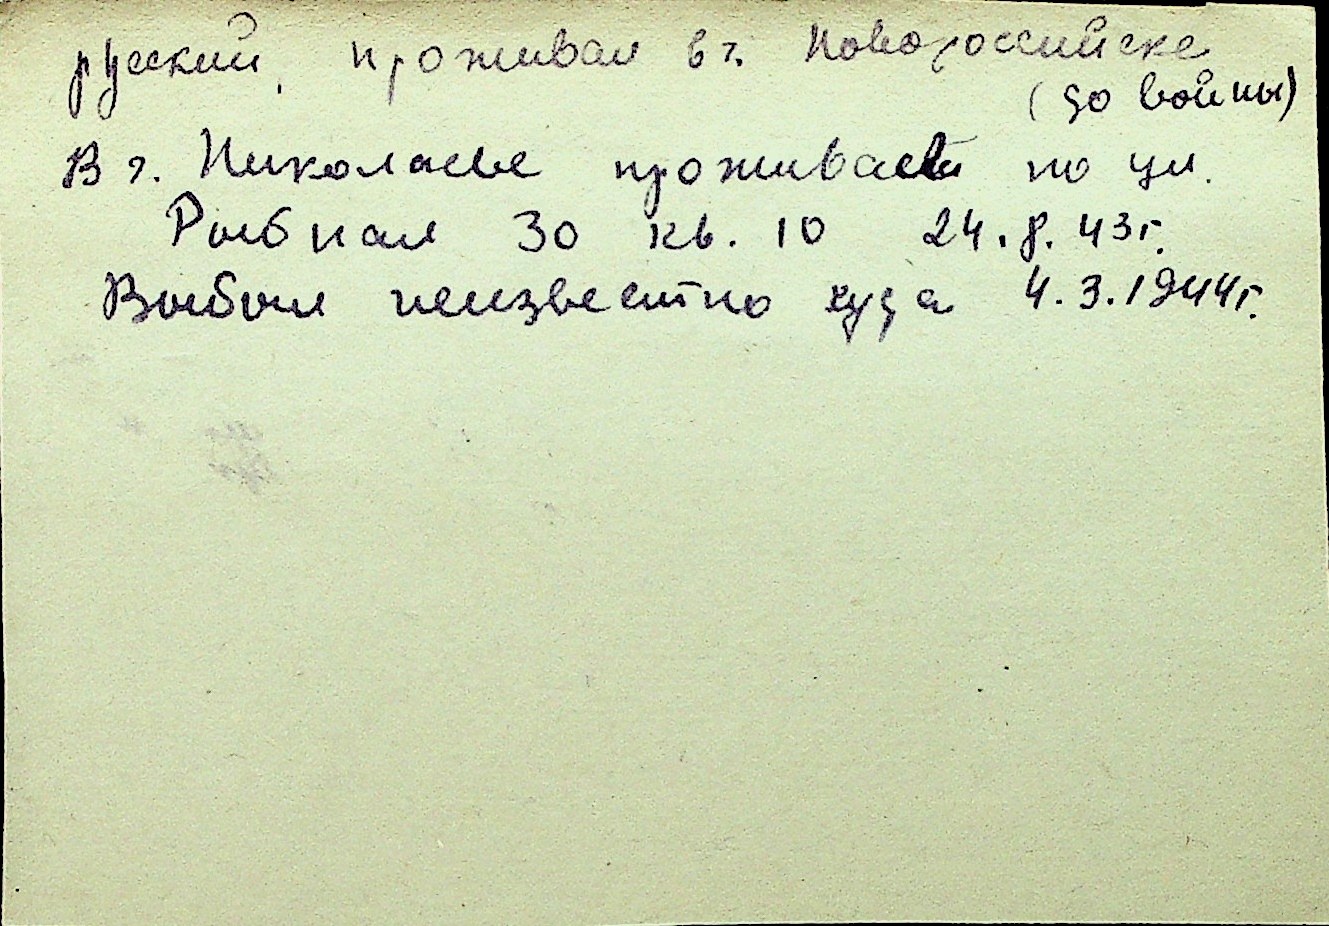 русский, проживал в г. Новороссийске
(до войны)
В г. Николаеве проживает по ул.
Рыбная 30 кв. 10 24.8.43г.
Выбыл неизвестно куда 4.3.1944г.